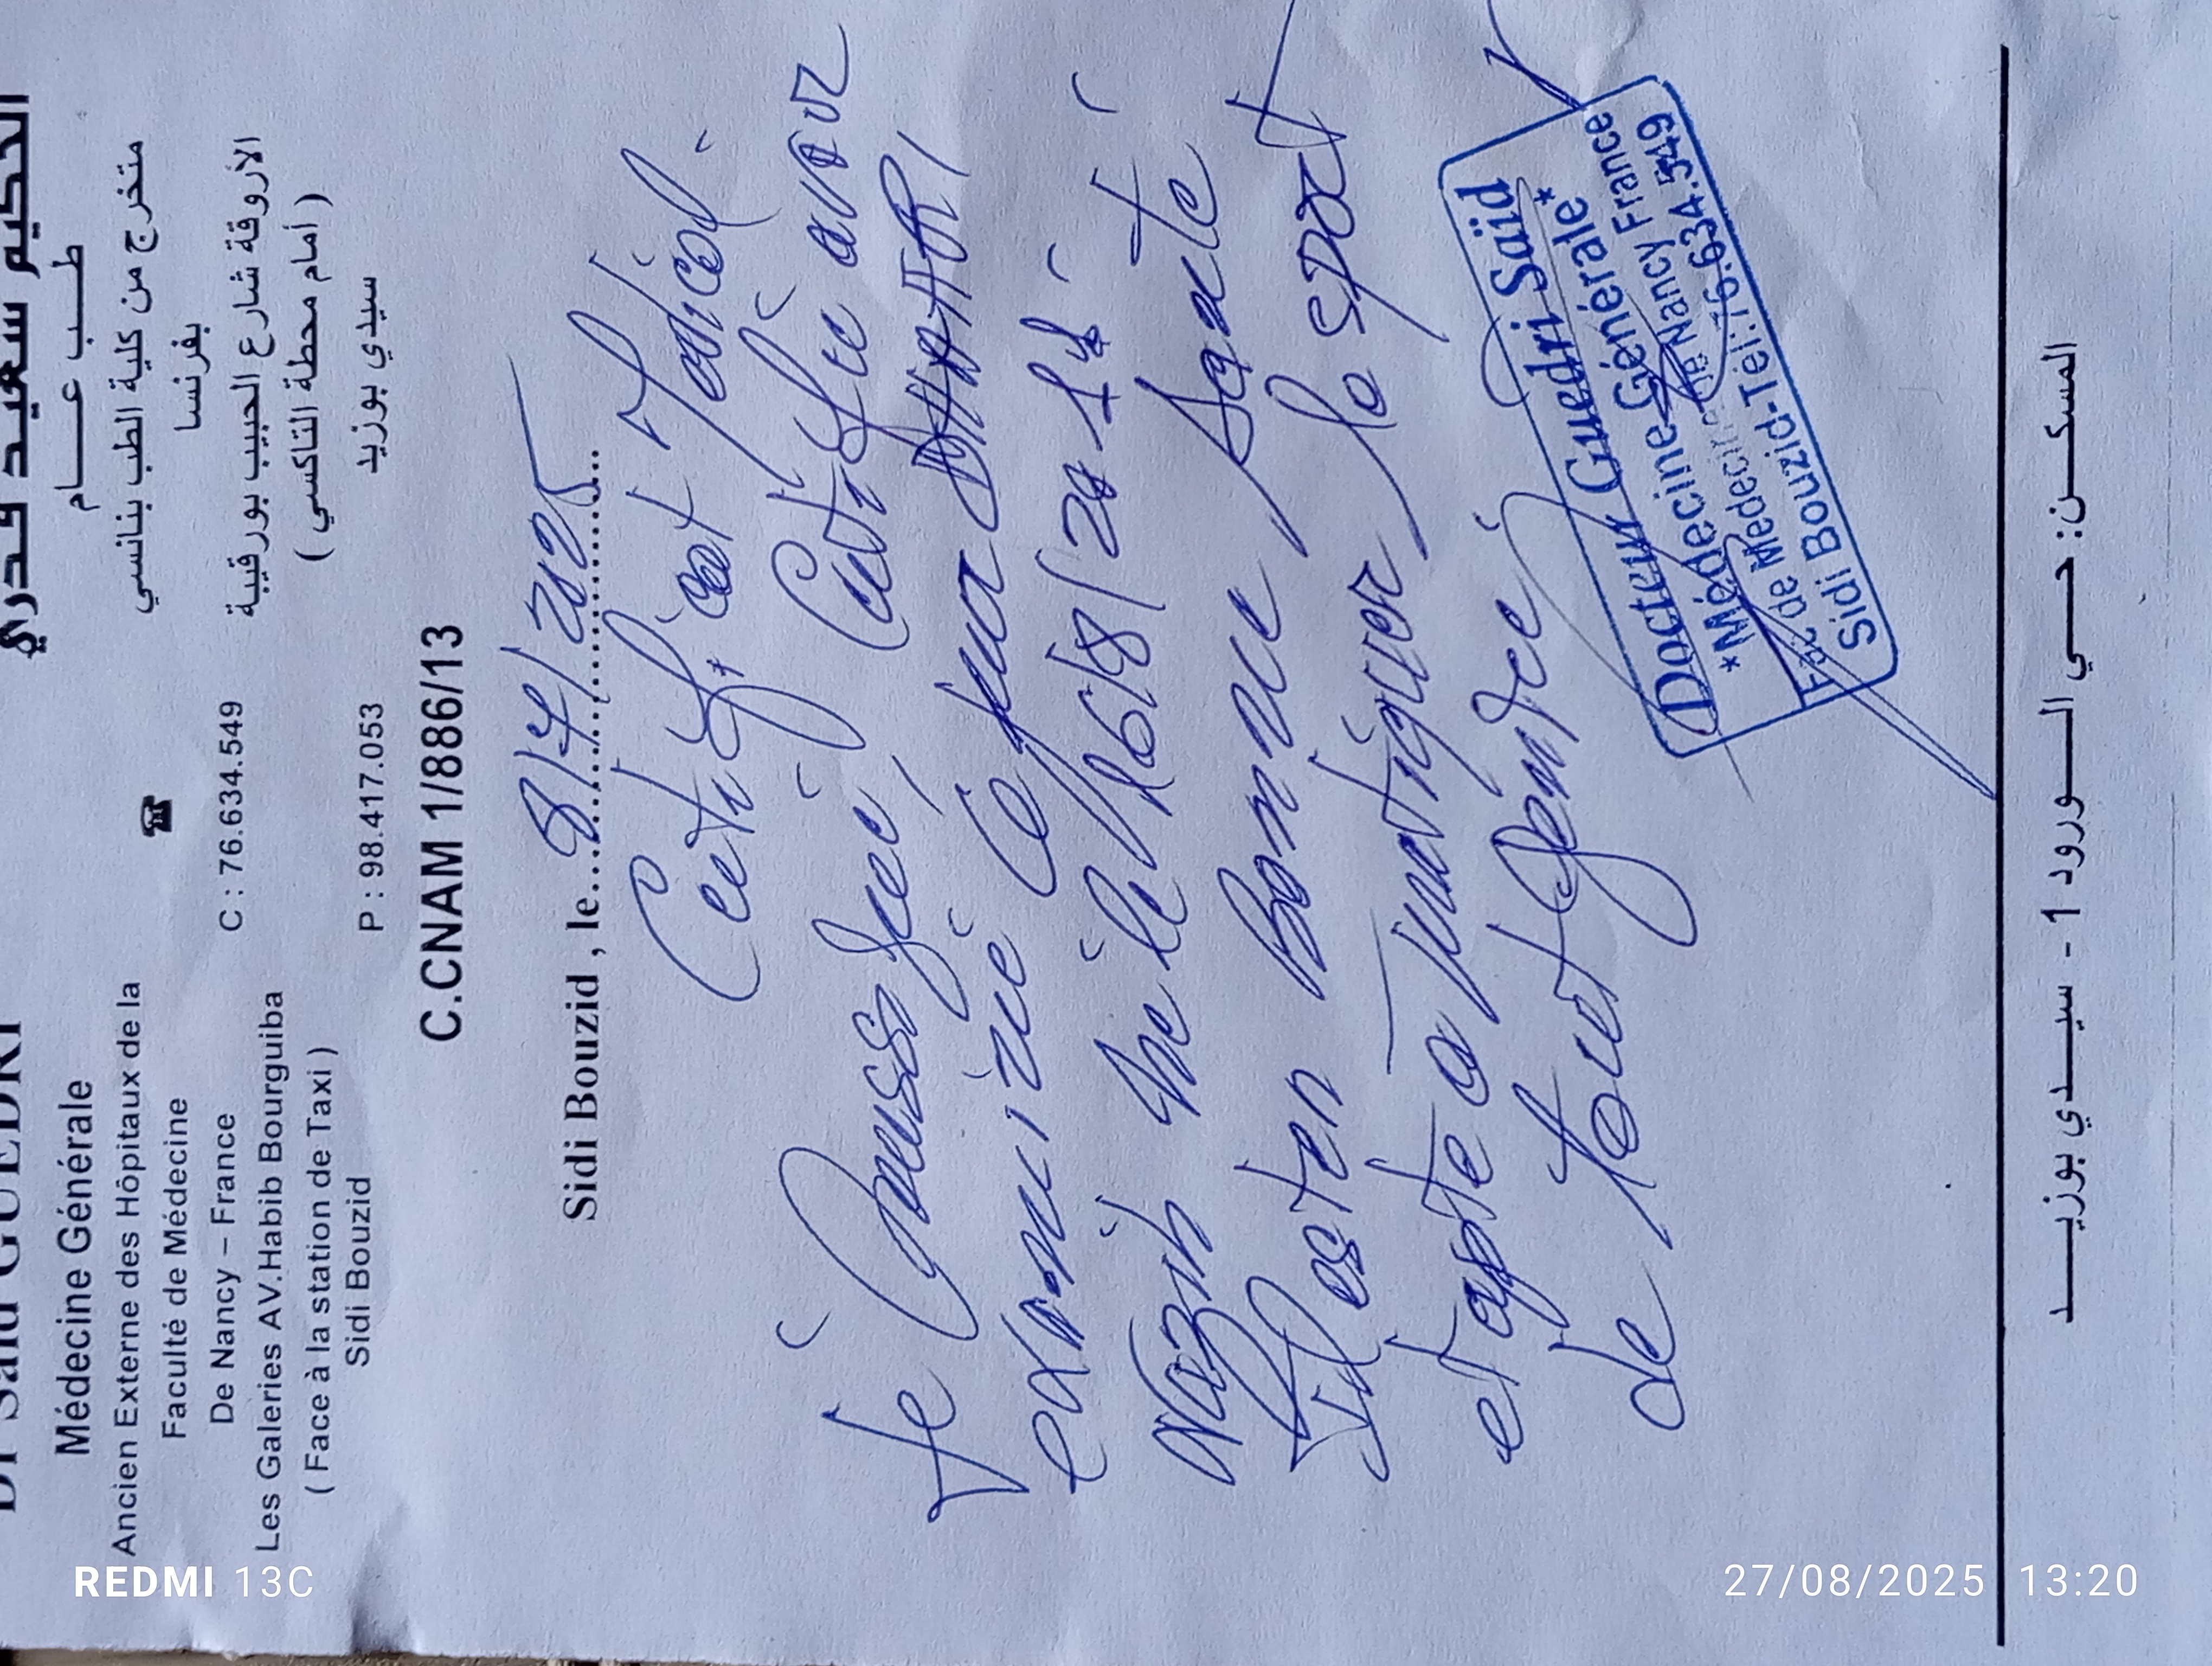 Dr Saïd GUEDRI
Médecine Générale
Ancien Externe des Hôpitaux de la
Faculté de Médecine
De Nancy – France
Les Galeries AV.Habib Bourguiba
( Face à la station de Taxi )
Sidi Bouzid
☎
C : 76.634.549
P : 98.417.053
الحكيم سعيد قدري
طب عام
متخرج من كلية الطب بنانسي
بفرنسا
الأروقة شارع الحبيب بورقيبة
( أمام محطة التاكسي )
سيدي بوزيد
C.CNAM 1/886/13
Sidi Bouzid , le... 8/4/2025
Certificat Médical
Je soussigné, Certifie avoir
examiné Ce jour DHAHRI
Nazih né le 16/8/2011
Il est en Bonne Santé
et apte à pratiquer le sport
de tout genre
Docteur Guedri Saïd
*Médecine Générale*
Fac de Médecine de Nancy France
Sidi Bouzid-Tél:76.634.549
المسكن: حي الورود 1 - سيدي بوزيد
REDMI 13C
27/08/2025 13:20